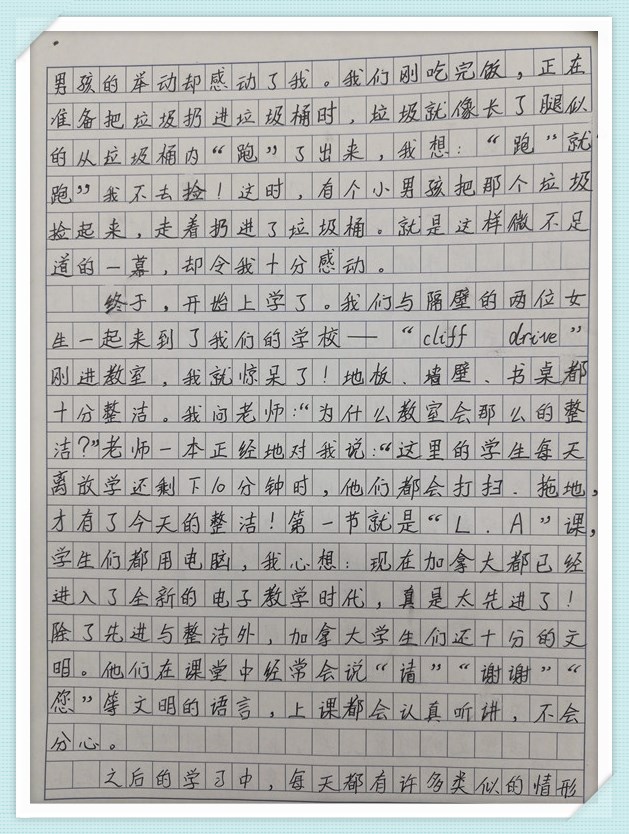 男孩的举动却感动了我。我们刚吃完饭，正在
准备把垃圾扔进垃圾桶时，垃圾就像长了腿似
的从垃圾桶内“跑”了出来，我想：“跑”就“
跑”我不去捡！这时，有个小男孩把那个垃圾
捡起来，走着扔进了垃圾桶。就是这样微不足
道的一幕，却令我十分感动。
终于，开始上学了。我们与隔壁的两位女
生一起来到了我们的学校——“cliff drive”
刚进教室，我就惊呆了！地板、墙壁、书桌都
十分整洁。我问老师：“为什么教室会那么的整
洁？”老师一本正经地对我说：“这里的学生每天
离放学还剩下10分钟时，他们都会打扫、拖地，
才有了今天的整洁！第一节就是“L．A”课，
学生们都用电脑，我心想：现在加拿大都已经
进入了全新的电子教学时代，真是太先进了！
除了先进与整洁外，加拿大学生们还十分的文
明。他们在课堂中经常会说“请”“谢谢”“
您”等文明的语言，上课都会认真听讲，不会
分心。
之后的学习中，每天都有许多类似的情形